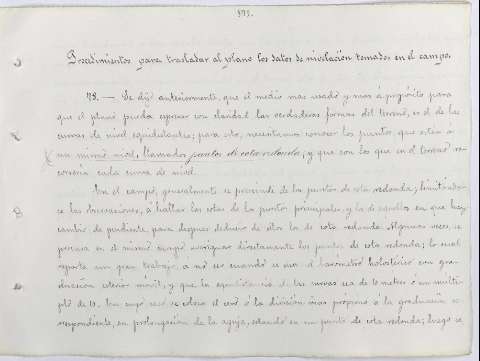 373.
Procedimientos para trasladar al plano los datos de nivelación tomados en el campo.
78. — Se dijo anteriormente, que el medio mas usado y mas á propósito para
que el plano pueda espresar con claridad las verdaderas formas del terreno, es el de las
curvas de nivel equidistantes; para esto, necesitamos conocer los puntos que están á
un mismo nivel, llamados puntos de cota redonda, y que son los que en el terreno re-
correría cada curva de nivel.
En el campo, generalmente se prescinde de los puntos de cota redonda; limitándo-
se las observaciones, á hallar las cotas de los puntos principales, y la de aquellos en que hay
cambio de pendiente, para despues deducir de ellos la de cota redonda. Algunas veces, se
procura en el mismo campo averiguar directamente los puntos de cota redonda; lo cual
reporta un gran trabajo, a no ser cuando se usa el barómetro holostérico con gra-
duacion exterior móvil, y que la equidistancia de las curvas sea de 10 metros ó un múlti-
plo de 10. En cuyo caso se coloca el cero ó la división mas próxima á la graduación co-
rrespondiente, en prolongación de la aguja, estando en un punto de cota redonda; luego se